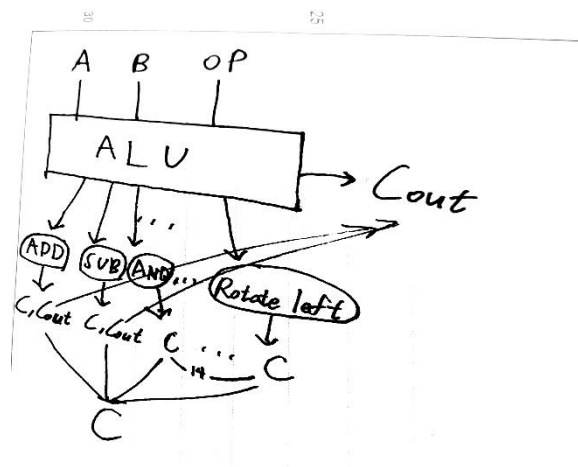 30 25
A B OP
ALU
Cout
...
ADD SUB AND ... Rotate left
C,Cout C,Cout C ... C
14
C